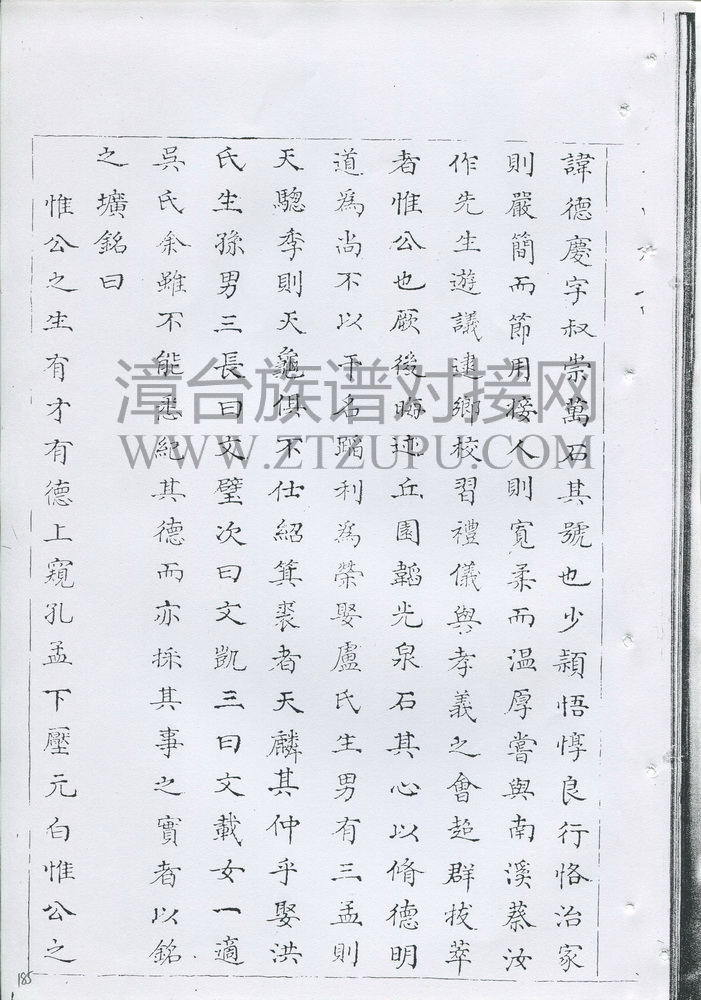 諱德慶字叔崇萬石其號也少穎悟惇良行恪治家
則嚴簡而節用接人則寬柔而溫厚嘗與南溪蔡汝
作先生遊議建鄉校習禮儀與孝義之會超群拔萃
者惟公也厥後晦迹丘園韜光泉石其心以脩德明
道為尚不以干名蹈利為榮娶盧氏生男有三孟則
天驄季則天龜俱不仕紹箕裘者天麟其仲乎娶洪
氏生孫男三長曰文璧次曰文凱三曰文載女一適
吳氏余雖不能悉紀其德而亦採其事之實者以銘
之壙銘曰
惟公之生有才有德上窺孔孟下壓元白惟公之
漳台族谱对接网
WWW.ZTZUPU.COM
185